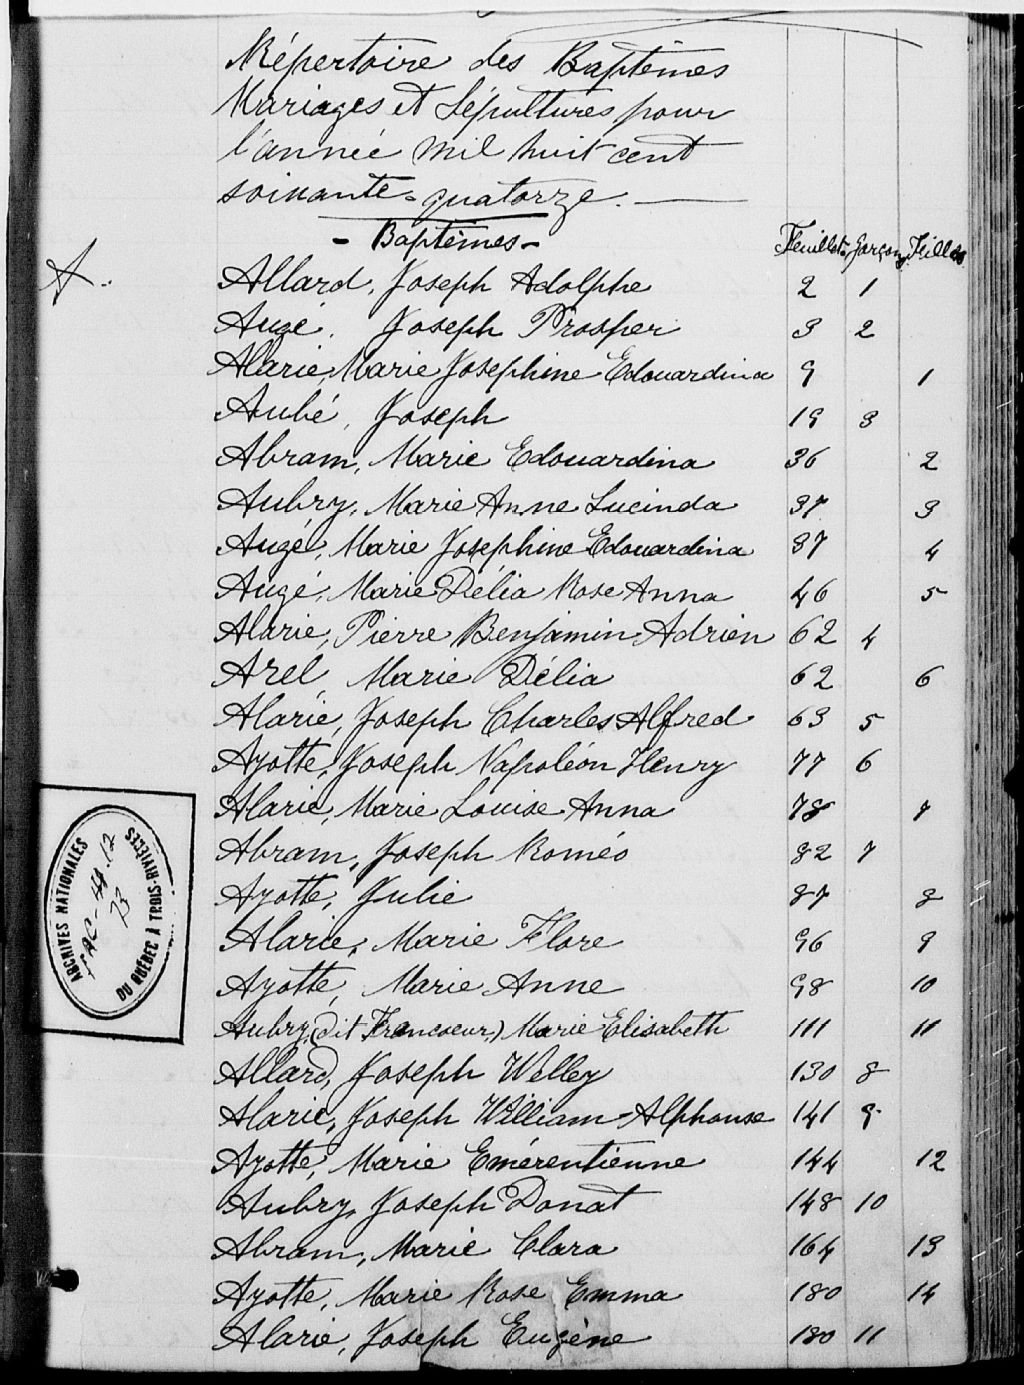 Répertoire des Baptêmes
Mariages et Sépultures pour
l'année mil huit cent
soixante-quatorze.
- Baptêmes -
Feuillets Garçons Filles
A.
Allard, Joseph Adolphe 2 1
Augé, Joseph Prosper 3 2
Alarie, Marie Josephine Edouardina 9 1
Aubé, Joseph 19 3
Abram, Marie Edouardina 36 2
Aubry, Marie Anne Lucinda 37 3
Augé, Marie Josephine Edouardina 37 4
Augé, Marie Délia Rose Anna 46 5
Alarie, Pierre Benjamin Adrien 62 4
Arel, Marie Délia 62 6
Alarie, Joseph Charles Alfred 63 5
Ayotte, Joseph Napoléon Henry 77 6
Alarie, Marie Louise Anna 78 7
Abram, Joseph Roméo 82 7
Ayotte, Julie 87 8
Alarie, Marie Flore 96 9
Ayotte, Marie Anne 98 10
Aubry, (dit Francoeur,) Marie Elisabeth 111 11
Allard, Joseph Welley 130 8
Alarie, Joseph William Alphonse 141 9
Ayotte, Marie Emérentienne 144 12
Aubry, Joseph Donat 148 10
Abram, Marie Clara 164 13
Ayotte, Marie Rose Emma 180 14
Alarie, Joseph Eugène 180 11
ARCHIVES NATIONALES
DU QUÉBEC À TROIS-RIVIÈRES
73